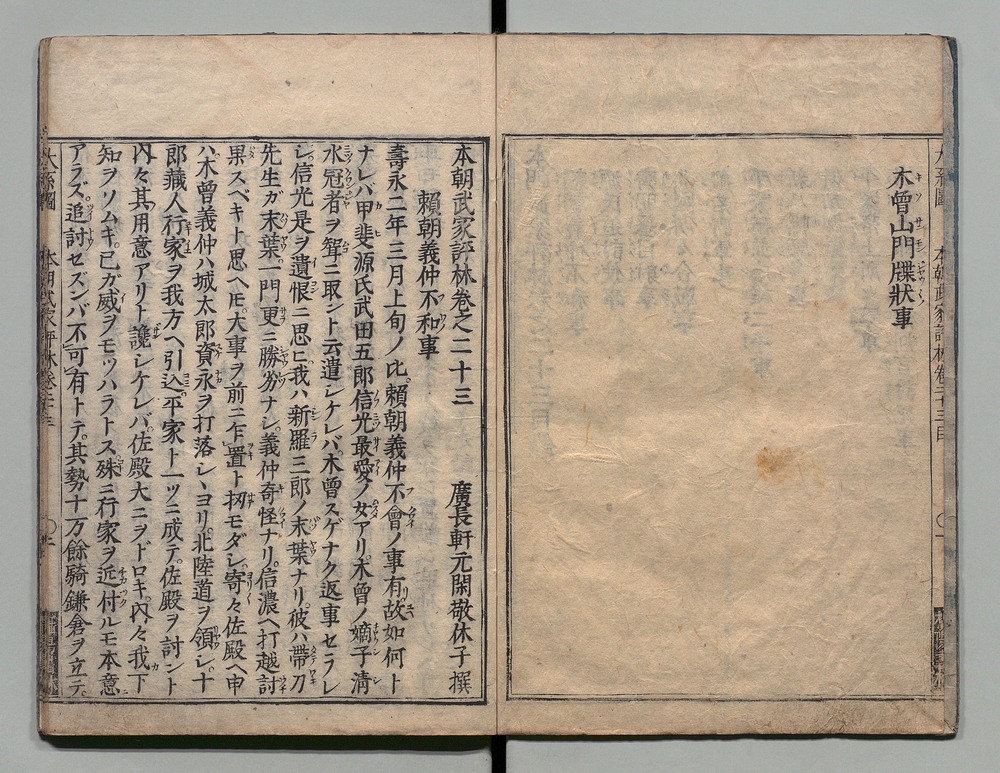 木曾山門牒狀事
本朝武家評林巻之二十三　廣長軒元閑敬休子撰
賴朝義仲不和事
壽永二年三月上旬ノ比。賴朝義仲不會ノ事有。故如何ト
ナレバ甲斐源氏武田五郎信光最愛ノ女アリ。木曾ノ嫡子淸
水冠者ヲ聟ニ取ント云遣シケレバ。木曾スゲナク返事セラレ
シ。信光是ヲ遺恨ニ思ヒ我ハ新羅三郎ノ末葉ナリ。彼ハ帶刀
先生ガ末葉。一門更ニ勝劣ナシ。義仲奇怪ナリ。信濃ヘ打越討
果スベキト思ヘ𪜈。大事ヲ前ニ乍置ト扨モダシ。寄々佐殿ヘ申
ハ。木曾義仲ハ城太郎資永ヲ打落シヽヨリ。北陸道ヲ領シ。十
郎藏人行家ヲ我方ヘ引込。平家ト一ツニ成テ。佐殿ヲ討ント
內々其用意アリト讒シケレバ。佐殿大ニヲドロキ。內々我下
知ヲソムキ。已ガ威ヲモッハラトス。殊ニ行家ヲ近付ルモ本意
アラズ。追討セズンバ不可有トテ。其勢十万餘騎鎌倉ヲ立テ。